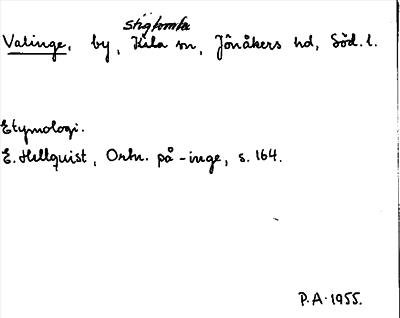 Stigtomta
Valinge, by, Kila sn, Jönåkers hd, Söd. l.
Etymologi.
E. Hellquist, Ortn. på -inge, s. 164.
P.A. 1955.